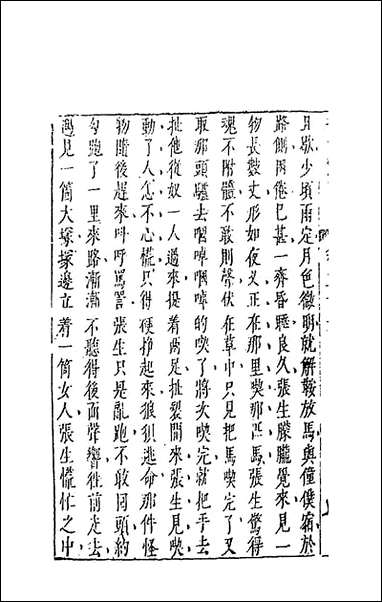 且歇少頃雨定月色微明就解鞍放馬與僮僕宿於
路側因倦已甚一齊昏睡良久張生朦朧覺來見一
物長數丈形如夜叉正在那里喫那匹馬張生驚得
魂不附體不敢則聲伏在草中只見把馬喫完了又
取那頭騾去啯啅啯啅的喫了將次喫完就把手去
扯他從奴一人過來提着兩足扯裂開來張生見喫
動了人怎不心慌只得硬掙起來狼狽逃命那件怪
物隨後趕來叫呼罵詈張生只是亂跑不敢回頭約
勾跑了一里來路漸漸不聽得後面聲響徃前走去
遇見一箇大塚塚邊立着一箇女人張生慌忙之中